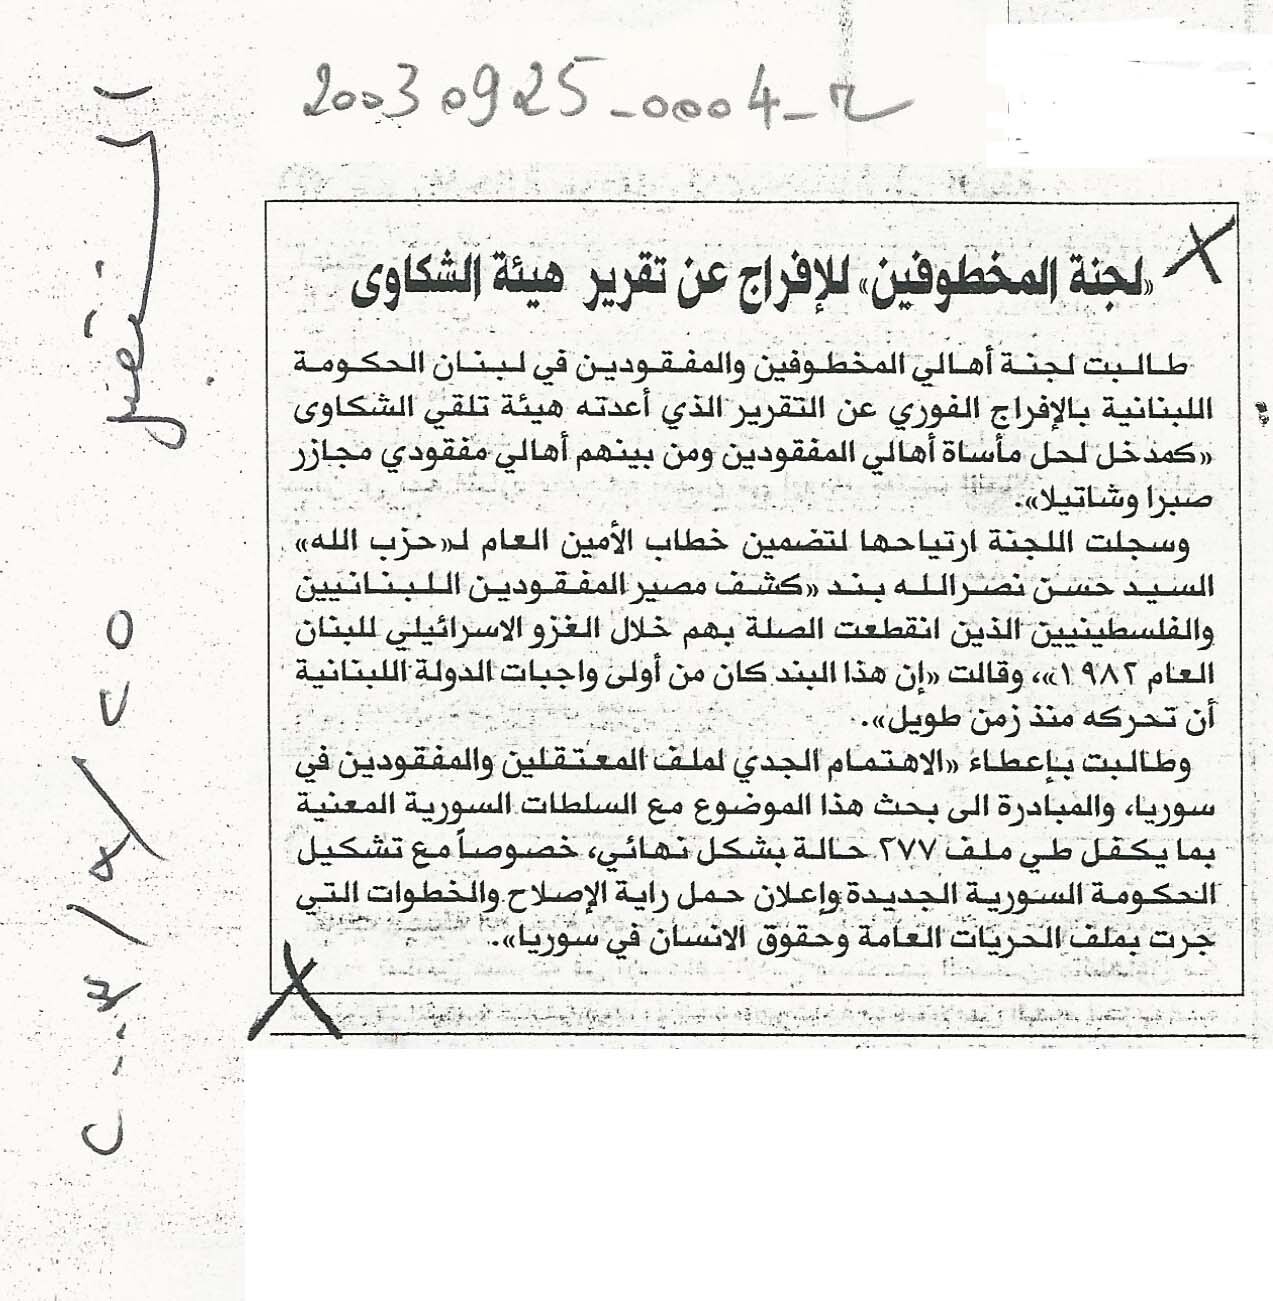 20030925_0004_r
المستقبل
٢٠٠٣/٩/٢٥
«لجنة المخطوفين» للإفراج عن تقرير هيئة الشكاوى
طالبت لجنة أهالي المخطوفين والمفقودين في لبنان الحكومة
اللبنانية بالإفراج الفوري عن التقرير الذي أعدته هيئة تلقي الشكاوى
«كمدخل لحل مأساة أهالي المفقودين ومن بينهم أهالي مفقودي مجازر
صبرا وشاتيلا».
وسجلت اللجنة ارتياحها لتضمين خطاب الأمين العام لـ«حزب الله»
السيد حسن نصرالله بند «كشف مصير المفقودين اللبنانيين
والفلسطينيين الذين انقطعت الصلة بهم خلال الغزو الاسرائيلي للبنان
العام ١٩٨٢»، وقالت «إن هذا البند كان من أولى واجبات الدولة اللبنانية
أن تحركه منذ زمن طويل».
وطالبت بإعطاء «الاهتمام الجدي لملف المعتقلين والمفقودين في
سوريا، والمبادرة الى بحث هذا الموضوع مع السلطات السورية المعنية
بما يكفل طي ملف ٢٧٧ حالة بشكل نهائي، خصوصاً مع تشكيل
الحكومة السورية الجديدة وإعلان حمل راية الإصلاح والخطوات التي
جرت بملف الحريات العامة وحقوق الانسان في سوريا».